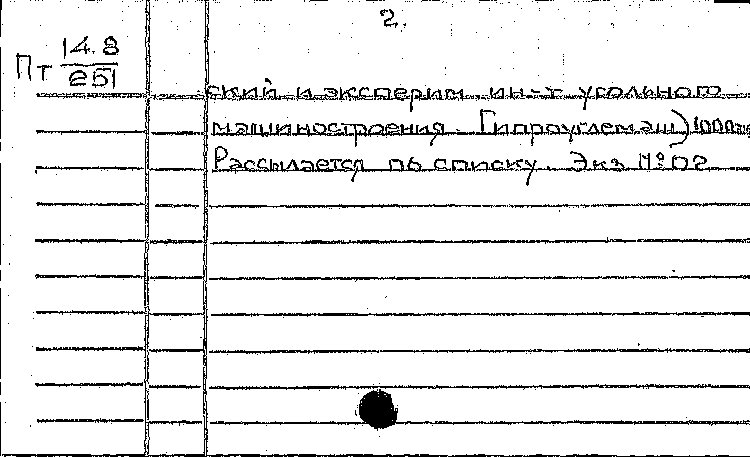 2.
Пт 14.8
е51
ский и эксперим. ин-т угольного
машиностроения. Гипроуглемаш) 1000экз
Рассылается по списку. Экз № 02